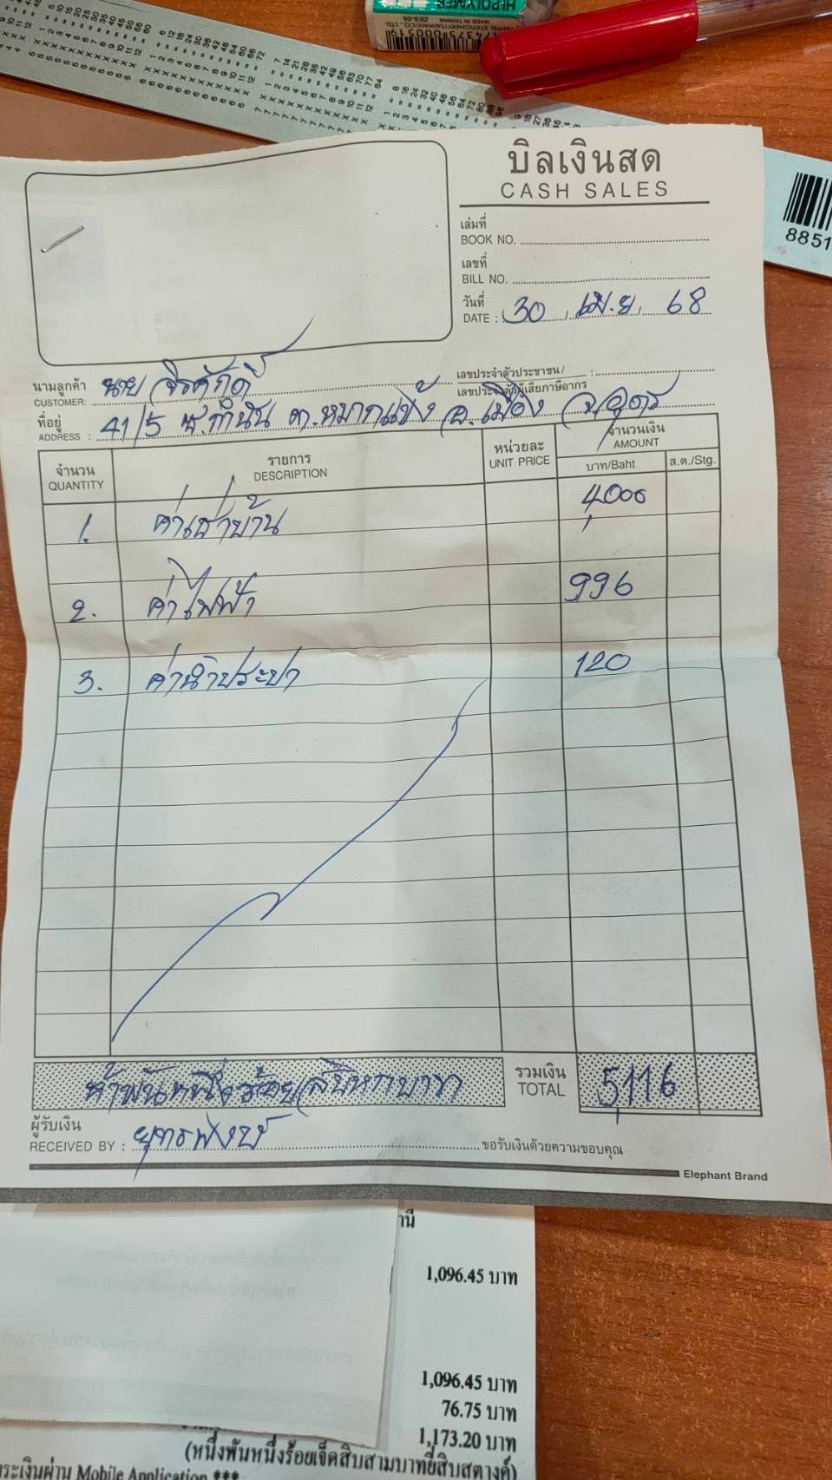 HI-POLYMER
ZES-05
MADE IN TAIWAN
บิลเงินสด
CASH SALES
8851
เล่มที่
BOOK NO.
เลขที่
BILL NO.
วันที่
DATE : 30 เม.ย. 68
นามลูกค้า นาย จิรศักดิ์ เลขประจำตัวประชาชน/ :
CUSTOMER: เลขประจำตัวผู้เสียภาษีอากร
ที่อยู่
ADDRESS : 41/5 ต.หมากแข้ง อ.เมือง จ.อุดร
จำนวน รายการ หน่วยละ จำนวนเงิน
QUANTITY DESCRIPTION UNIT PRICE AMOUNT
บาท/Baht ส.ต./Stg.
1. ค่าเช่าบ้าน 4,000
2. ค่าไฟฟ้า 996
3. ค่าน้ำประปา 120
ห้าพันหนึ่งร้อยสิบหกบาท รวมเงิน 5,116
TOTAL
ผู้รับเงิน
RECEIVED BY : ขอรับเงินด้วยความขอบคุณ
Elephant Brand
1,096.45 บาท
1,096.45 บาท
76.75 บาท
1,173.20 บาท
(หนึ่งพันหนึ่งร้อยเจ็ดสิบสามบาทยี่สิบสตางค์)
ระเงินผ่าน Mobile Application ***